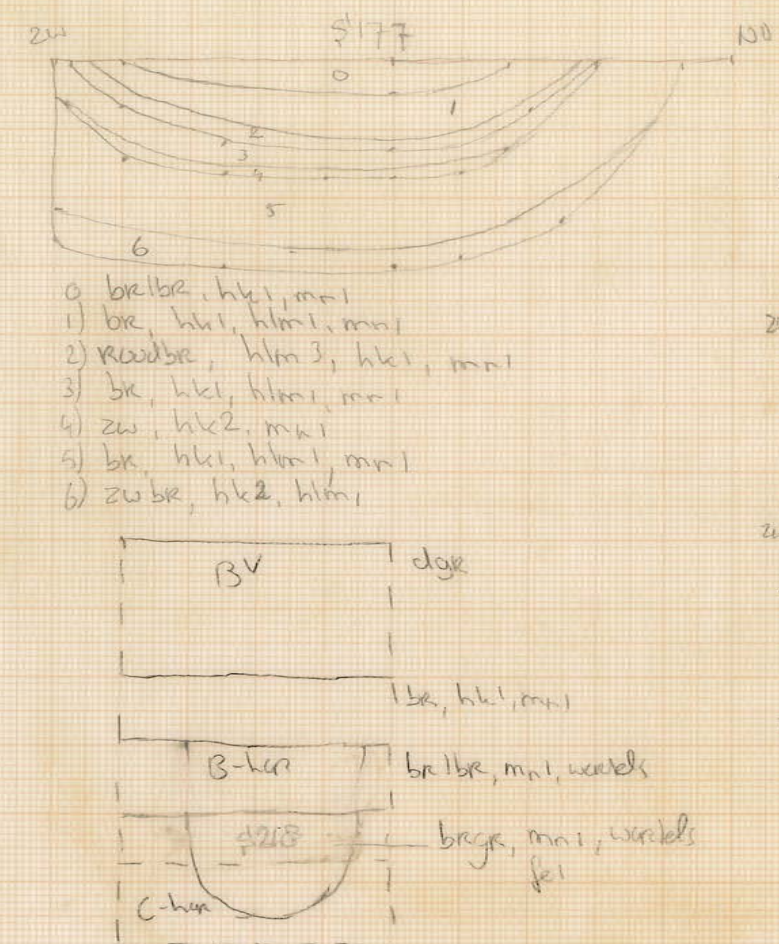 ZW S177 NO
0
1
2
3
4
5
6
0 br/br, hk1, mn1
1) br, hk1, hlm1, mn1
2) roodbr, hlm3, hk1, mn1
3) br, hk1, hlm1, mn1
4) zw, hk2, mn1
5) br, hk1, hlm1, mn1
6) zwbr, hk2, hlm1
BV dgr
lbr, hk1, mn1
B-hor br/br, mn1, wortels
S268 brgr, mn1, wortels
fe1
C-hor